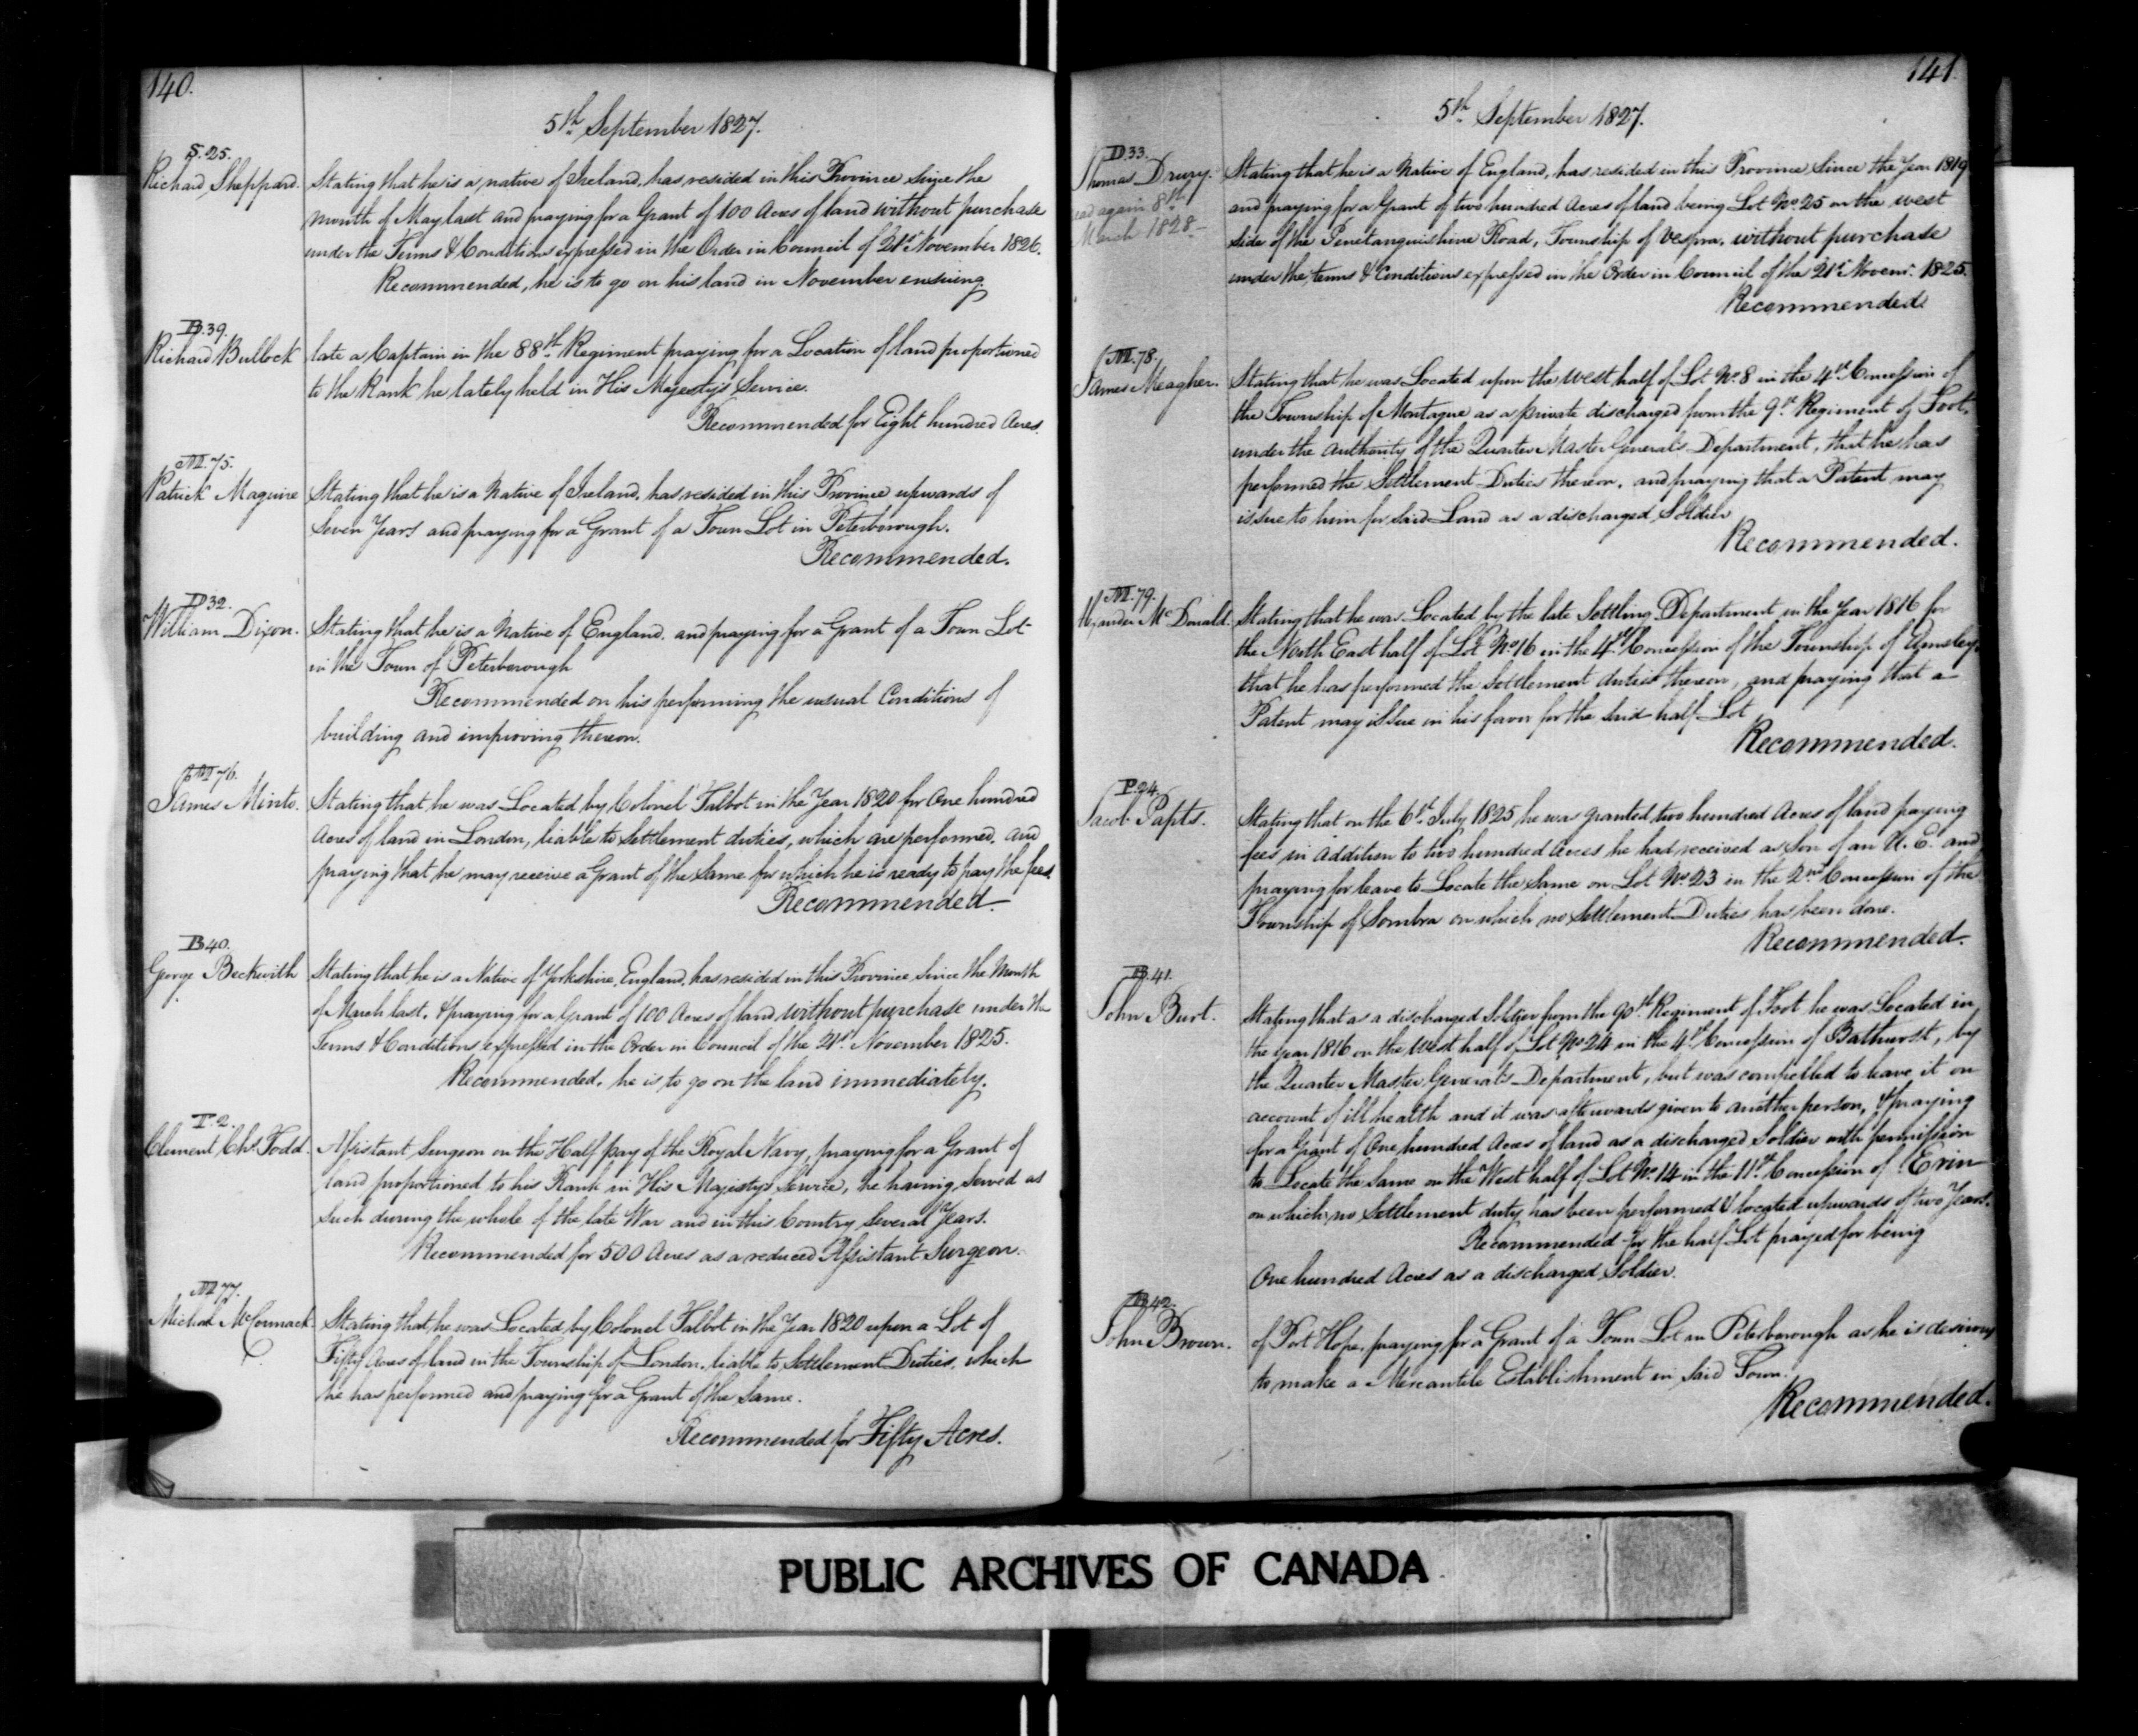 140.
5th September 1827.
S.25.
Richard Sheppard.
Stating that he is a native of Ireland, has resided in this Province since the
month of May last and praying for a Grant of 100 Acres of land without purchase
under the Terms & Conditions expressed in the Order in Council of 21st November 1826.
Recommended, he is to go on his land in November ensuing.
B.39.
Richard Bullock
late a Captain in the 88th Regiment praying for a Location of land proportioned
to the Rank he lately held in His Majesty's Service.
Recommended for Eight hundred Acres.
M.75.
Patrick Maguire
Stating that he is a Native of Ireland, has resided in this Province upwards of
Seven Years and praying for a Grant of a Town Lot in Peterborough.
Recommended.
D32.
William Dixon.
Stating that he is a Native of England, and praying for a Grant of a Town Lot
in the Town of Peterborough
Recommended on his performing the usual Conditions of
building and improving thereon.
M76.
James Minto.
Stating that he was Located by Colonel Talbot in the Year 1820 for One hundred
Acres of land in London, liable to Settlement duties, which are performed, and
praying that he may receive a Grant of the same for which he is ready to pay the fees.
Recommended.
B40.
George Beckwith
Stating that he is a Native of Yorkshire, England, has resided in this Province since the Month
of March last, & praying for a Grant of 100 Acres of land without purchase under the
Terms & Conditions expressed in the Order in Council of the 21st November 1825.
Recommended, he is to go on the land immediately.
T.2.
Clement Chs. Todd.
Assistant Surgeon on the Half pay of the Royal Navy, praying for a Grant of
land proportioned to his Rank in His Majesty's Service, he having served as
such during the whole of the late War and in this Country several Years.
Recommended for 500 Acres as a reduced Assistant Surgeon.
M77.
Michael McCormack
Stating that he was Located by Colonel Talbot in the Year 1820 upon a Lot of
Fifty Acres of land in the Township of London, liable to Settlement Duties, which
he has performed and praying for a Grant of the same.
Recommended for Fifty Acres.
141
5th September 1827.
D.33.
Thomas Drury.
again 8th
March 1828
Stating that he is a Native of England, has resided in this Province since the Year 1819
and praying for a Grant of two hundred Acres of land being Lot No. 25 on the west
side of the Penetanguishine Road, Township of Vespra, without purchase
under the terms & Conditions expressed in the Order in Council of the 21st Novemr. 1825.
Recommended
M.78.
James Meagher.
Stating that he was Located upon the West half of Lot No. 8 in the 4th Concession of
the Township of Montague as a private discharged from the 9th Regiment of Foot,
under the Authority of the Quarter Master General's Department, that he has
performed the Settlement Duties thereon, and praying that a Patent may
issue to him for said Land as a discharged Soldier
Recommended.
M.79.
McDonald.
Stating that he was Located by the late Settling Department in the Year 1816 for
the North East half of Lot No. 16 in the 4th Concession of the Township of
that he has performed the Settlement duties thereon, and praying that a
Patent may issue in his favor for the said half Lot
Recommended.
P.24.
Jacob Papts.
Stating that on the 6th July 1825 he was granted two hundred Acres of land paying
fees in Addition to two hundred acres he had received as Son of an U.E. and
praying for leave to Locate the same on Lot No. 23 in the 2nd Concession of the
Township of Sombra on which no Settlement Duties has been done.
Recommended.
B.41.
John Burt.
Stating that as a discharged Soldier from the 90th Regiment of Foot he was Located in
the year 1816 on the West half of Lot No. 24 in the 4th Concession of Bathurst, by
the Quarter Master General's Department, but was compelled to leave it on
account of ill health and it was afterwards given to another person, & praying
for a Grant of One hundred Acres of land as a discharged Soldier with permission
to Locate the same on the West half of Lot No. 14 in the 11th Concession of Erin
on which no Settlement duty has been performed & located upwards of two Years.
Recommended for the half Lot prayed for being
One hundred Acres as a discharged Soldier.
B42.
John Brown.
of Port Hope, praying for a Grant of a Town Lot in Peterborough as he is desirous
to make a Mercantile Establishment in said Town.
Recommended.
PUBLIC ARCHIVES OF CANADA